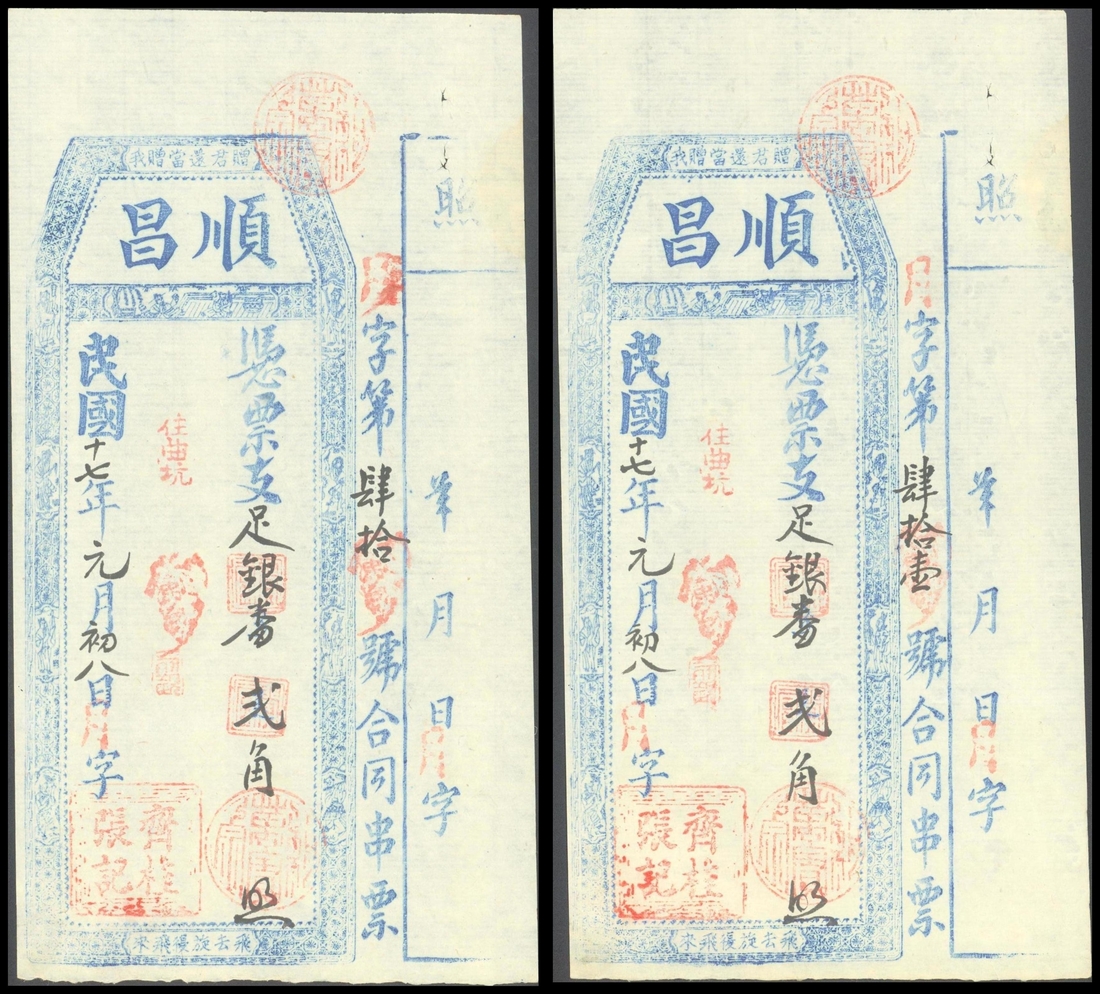 贈君還當贈我
順昌
照
月字第肆拾號合同串票
憑票支足銀番弍角照
住曲坑
民國十七年元月初八日月字
年月日月字
齊桂
張記
飛去旋復飛來
贈君還當贈我
順昌
照
月字第肆拾壹號合同串票
憑票支足銀番弍角照
住曲坑
民國十七年元月初八日月字
年月日月字
齊桂
張記
飛去旋復飛來